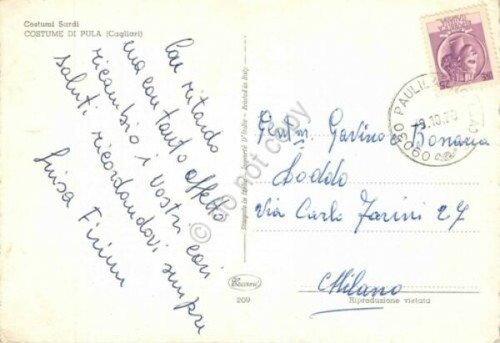 Costumi Sardi
COSTUME DI PULA (Cagliari)
Con ritardo
ma con tanto affetto
ricambio i Vostri cari
saluti ricordandovi sempre
Luisa Firinu
Stampato in Italia - Printed in Italy
do not copy
PAULI
9.10.70
Gent.mi Gavino e Bonaria
Loddo
Via Carlo Farini 27
Milano
209
Riproduzione vietata